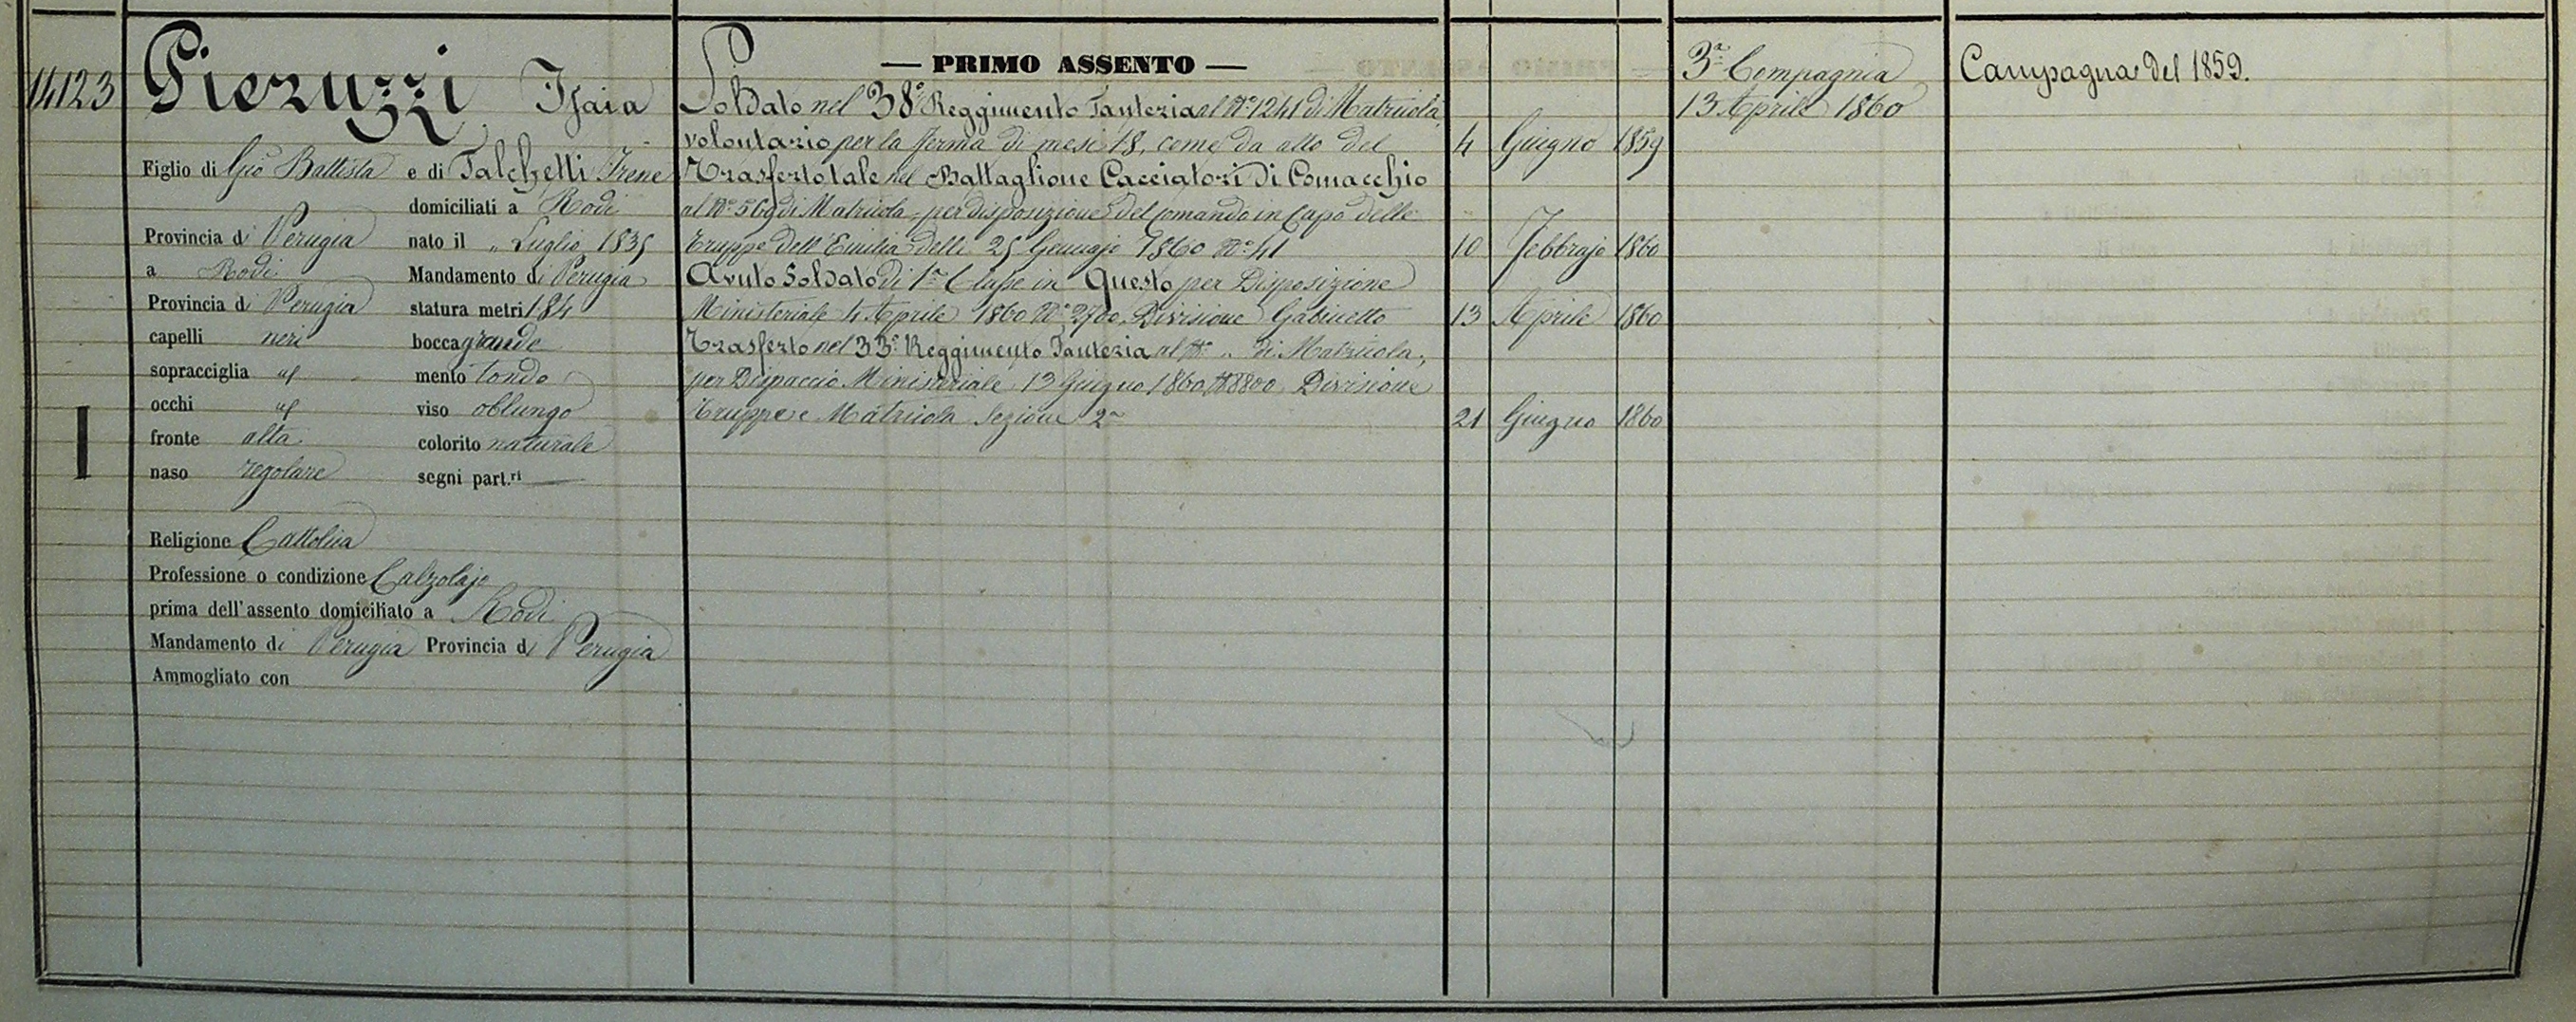 14123
Pieruzzi Isaia
Figlio di Gio Battista e di Falchetti Irene
domiciliati a Rodi
Provincia di Perugia nato il " Luglio 1835
a Rodi Mandamento di Perugia
Provincia di Perugia statura metri 1.84
capelli neri bocca grande
sopracciglia id mento tondo
occhi id viso oblungo
fronte alta colorito naturale
naso regolare segni part.ri —
I
Religione Cattolica
Professione o condizione Calzolajo
prima dell'assento domiciliato a Rodi
Mandamento di Perugia Provincia di Perugia
Ammogliato con
— PRIMO ASSENTO —
Soldato nel 38° Reggimento Fanteria al N° 1241 di Matricola,
volontario per la ferma di mesi 18, come da atto del 4 Giugno 1859
Trasferto tale nel Battaglione Cacciatori di Comacchio
al N° 569 di Matricola, per disposizione del Comando in Capo delle
Truppe dell'Emilia delli 25 Gennajo 1860 N° 41 10 Febbrajo 1860
Avuto Soldato di 1a Classe in Questo per Disposizione
Ministeriale 4 Aprile 1860 N° 2700, Divisione Gabinetto 13 Aprile 1860
Trasferto nel 33° Reggimento Fanteria al N° " di Matricola,
per Dispaccio Ministeriale 13 Giugno 1860 N° 8800 Divisione
Truppe e Matricola Sezione 2a 21 Giugno 1860
3a Compagnia
13 Aprile 1860
Campagna del 1859.